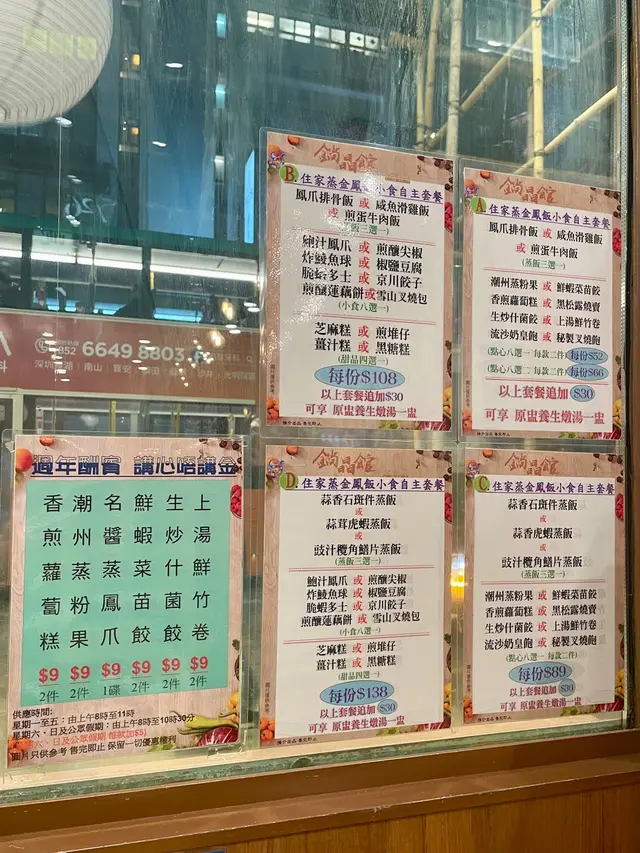 B. 住家蒸金鳳飯小食自主套餐
鳳爪排骨飯 或 咸魚滑雞飯
或 煎蛋牛肉飯
鮑汁鳳爪 或 煎釀尖椒
炸鯪魚球 或 椒鹽豆腐
脆蝦多士 或 京川餃子
煎釀蓮藕餅或雪山叉燒包
(小食八選一)
芝麻糕 或 煎堆仔
薑汁糕 或 黑糖糕
(甜品四選一)
每份$108
以上套餐追加$30
可享 原盅養生燉湯一盅
A 住家蒸金鳳飯小食自主套餐
鳳爪排骨飯 或 咸魚滑雞飯
或 煎蛋牛肉飯
(蒸飯三選一)
潮州蒸粉果 或 鮮蝦菜苗餃
香煎蘿蔔糕 或 黑松露燒賣
生炒什菌餃 或 上湯鮮竹卷
流沙奶皇飽 或 秘製叉燒飽
(點心八選一 每款二件) 每份$52
(點心八選二 每款二件) 每份$66
以上套餐追加 $30
可享 原盅養生燉湯一盅
D. 住家蒸金鳳飯小食自主套餐
蒜香石斑件蒸飯
或
蒜茸虎蝦蒸飯
或
豉汁欖角鱔片蒸飯
(蒸飯三選一)
鮑汁鳳爪 或 煎釀尖椒
炸鯪魚球 或 椒鹽豆腐
脆蝦多士 或 京川餃子
煎釀蓮藕餅 或 雪山叉燒包
(小食八選一)
芝麻糕 或 煎堆仔
薑汁糕 或 黑糖糕
(甜品四選一)
每份$138
以上套餐追加 $30
可享 原盅養生燉湯一盅
C. 住家蒸金鳳飯小食自主套餐
蒜香石斑件蒸飯
或
蒜香虎蝦蒸飯
或
豉汁欖角鱔片蒸飯
(蒸飯三選一)
潮州蒸粉果 或 鮮蝦菜苗餃
香煎蘿蔔糕 或 黑松露燒賣
生炒什菌餃 或 上湯鮮竹卷
流沙奶皇飽 或 秘製叉燒飽
(點心八選一 每款二件)
每份$89
以上套餐追加 $30
可享 原盅養生燉湯一盅
6649 8803
週年酬賓 講心唔講金
上湯鮮竹卷 $9 2件
生炒什菌餃 $9 2件
鮮蝦菜苗餃 $9 2件
名醬蒸鳳爪 $9 1碟
潮州蒸粉果 $9 2件
香煎蘿蔔糕 $9 2件
供應時間:
星期一至五：由上午8時至11時
星期六、日及公眾假期：由上午8時至10時30分
六、日及公眾假期 每款加$5)
圖片只供參考 售完即止 保留一切優惠權利